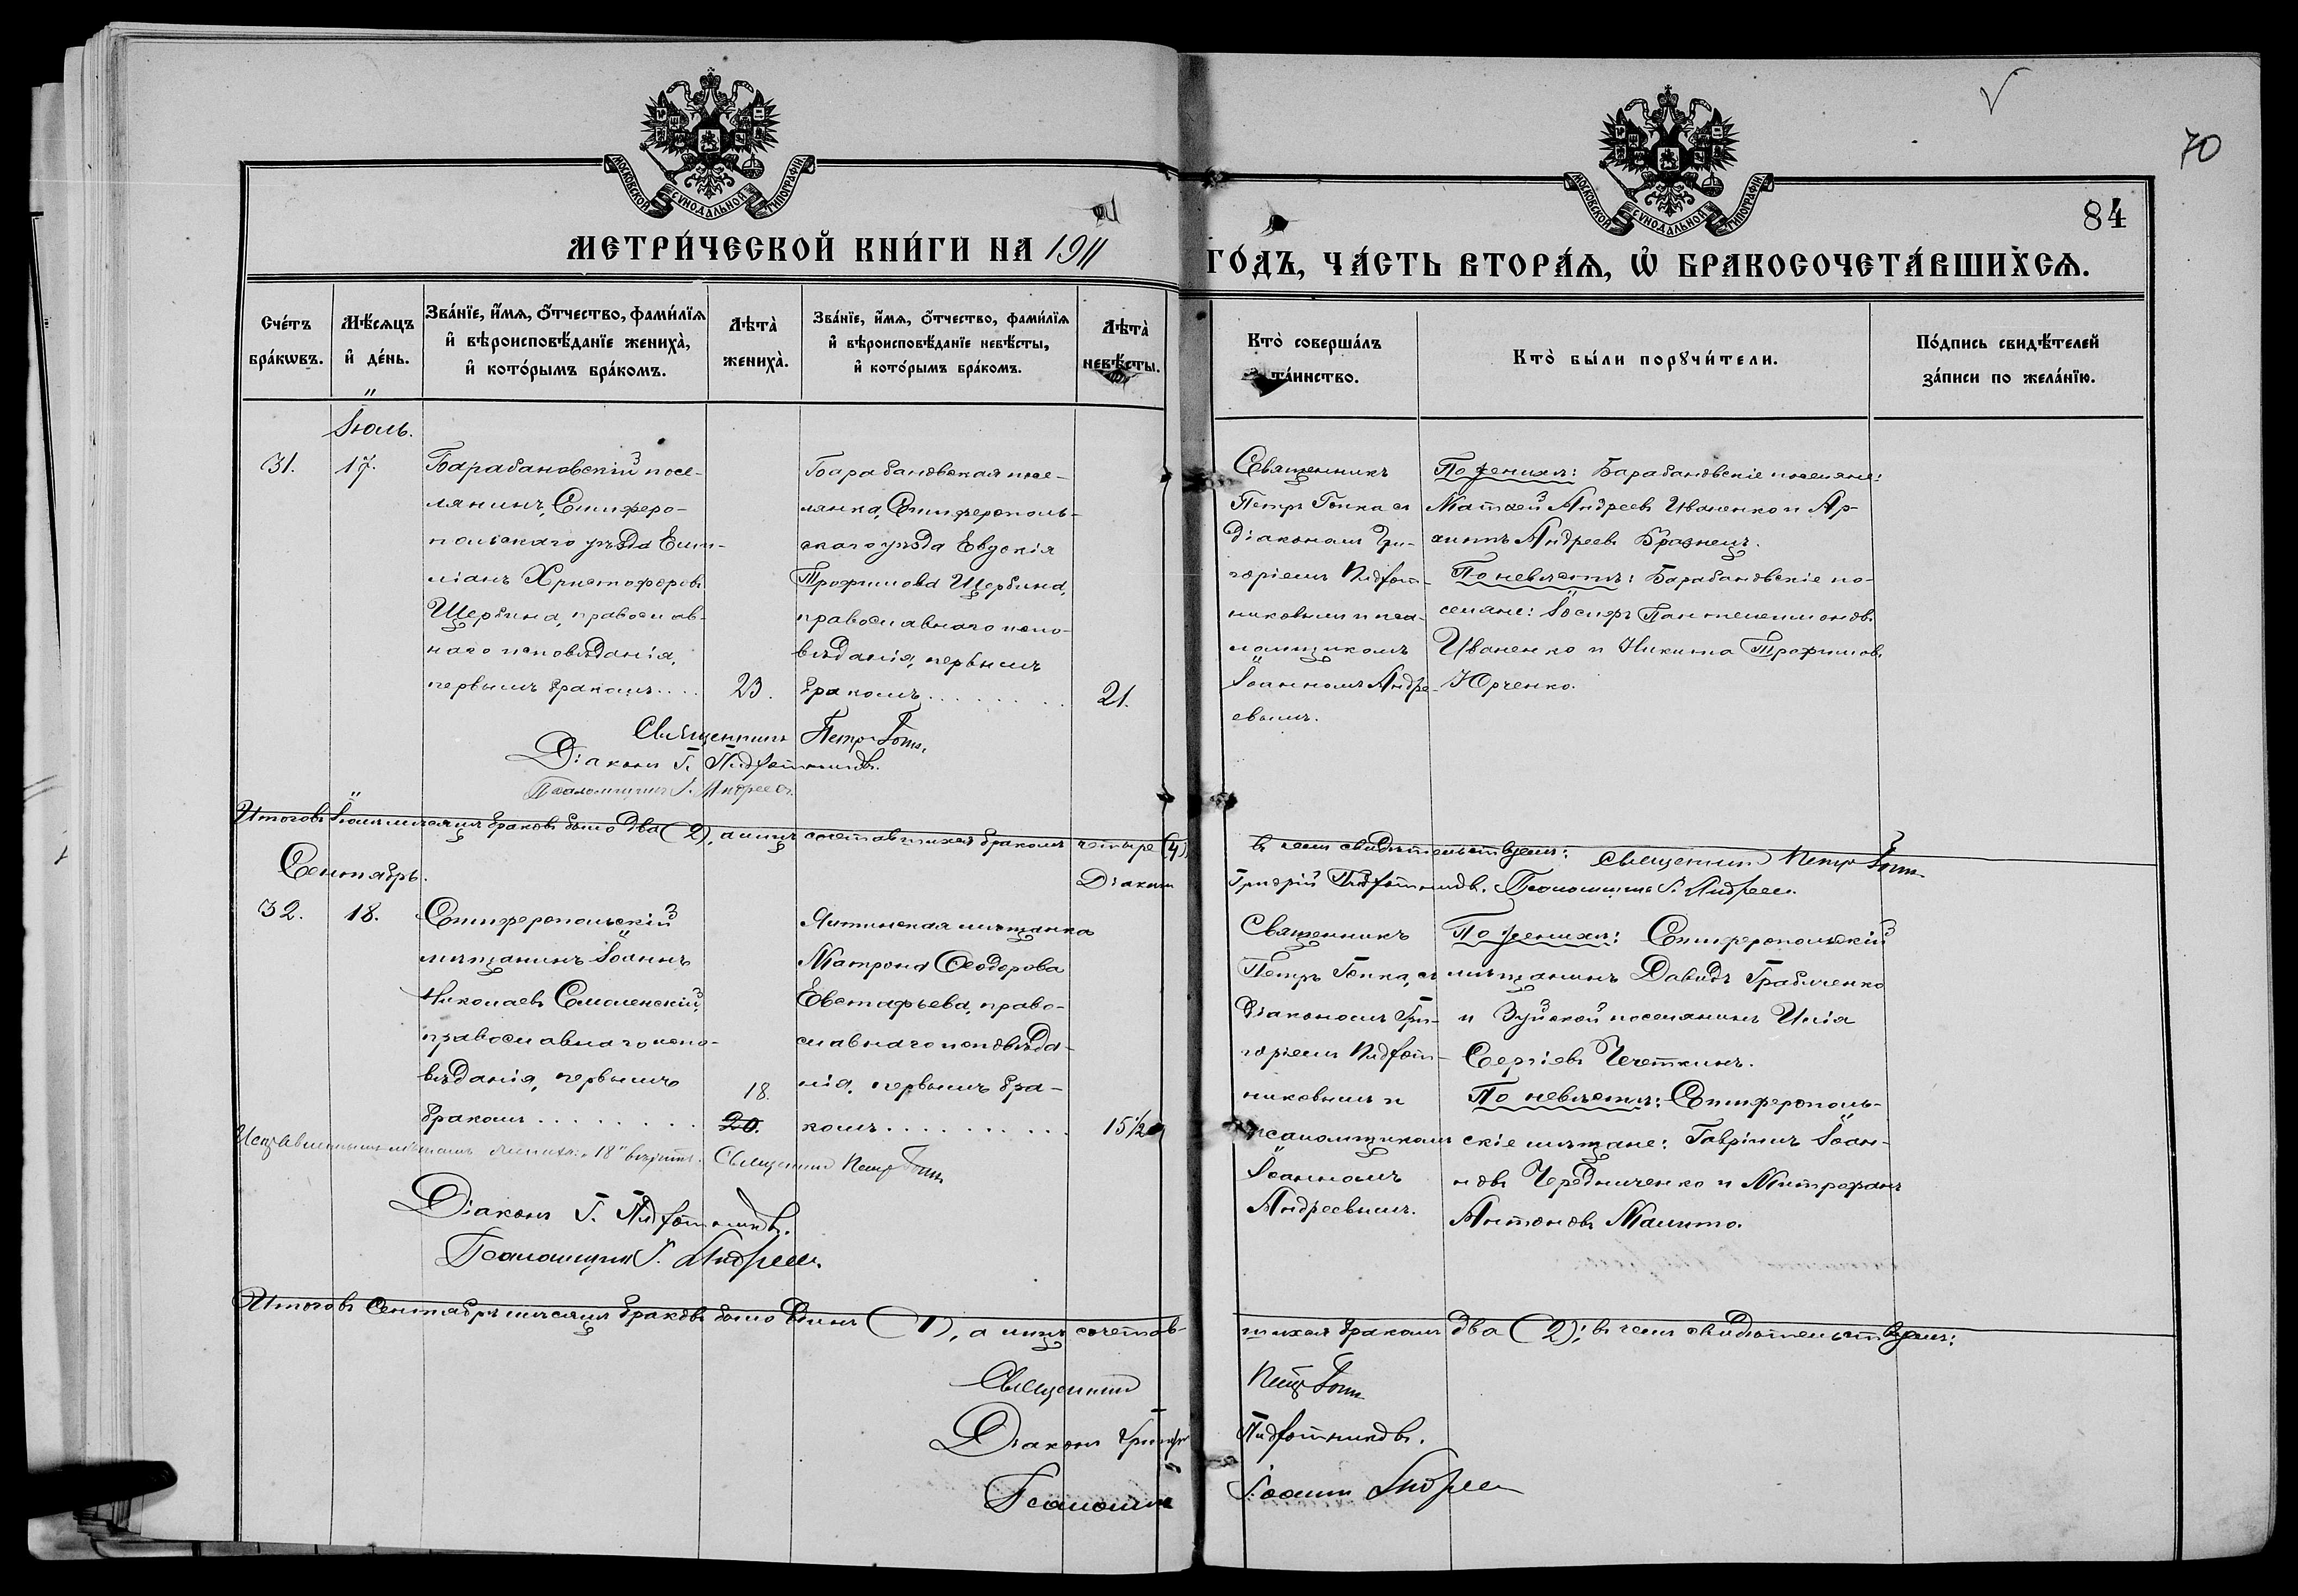 70
84
МОСКОВСКОЙ СѴНОДАЛЬНОЙ ТИПОГРАФІИ
МОСКОВСКОЙ СѴНОДАЛЬНОЙ ТИПОГРАФІИ
МЕТРИ́ЧЕСКОЙ КНИ́ГИ НА 1911
ГО́ДЪ, ЧА́СТЬ ВТОРА́Ѧ, Ѡ҆ БРАКОСОЧЕТА́ВШИХСѦ.
Сче́тъ
бра́кѡвъ.
Мѣ́сѧцъ
и҆ де́нь.
Зва́нїе, и҆́мѧ, ѻ҆́тчество, фами́лїѧ
и҆ вѣроисповѣ́данїе жениха̀,
и҆ кото́рымъ бра́комъ.
Лѣта̀
жениха̀.
Зва́нїе, и҆́мѧ, ѻ҆́тчество, фами́лїѧ
и҆ вѣроисповѣ́данїе невѣ́сты,
и҆ кото́рымъ бра́комъ.
Лѣта̀
невѣ́сты.
Кто̀ соверша́лъ
та́инство.
Кто̀ бы́ли порꙋчи́тели.
По́дпись свидѣ́телей
за́писи по жела́нїю.
Іюль.
31.
17.
Барабановскій посе-
лянинъ, Симферо-
польскаго уѣзда Емил-
ліанъ Христофоровъ
Щербина, православ-
наго исповѣданія,
первымъ бракомъ....
23.
Барабановская посе-
лянка, Симферополь-
скаго уѣзда Евдокія
Трофимова Щербина,
православнаго испо-
вѣданія, первымъ
бракомъ........
21.
Священникъ
Петръ Гопка съ
діакономъ Гри-
горіемъ
никовымъ и пса-
ломщикомъ
Іоанномъ Андре-
евымъ.
По женихѣ: Барабановскіе поселяне:
Матвей Андреевъ Иваненко и Ар-
хиппъ Андреевъ Бразнецъ.
По невѣстѣ: Барабановскіе по-
селяне: Іосифъ Пантелеимоновъ
Иваненко и Никита Трофимовъ
Юрченко.
Священникъ Петръ
Діаконъ Г.
Псаломщикъ І. Андреевъ.
Итого въ Іюлѣ мѣсяцѣ браковъ было два (2), а лицъ сочетавшихся бракомъ четыре (4),
въ чемъ свидѣтельствуемъ: Священникъ Петръ
Діаконъ
Григорій Псаломщикъ І. Андреевъ.
Сентябрь.
32.
18.
Симферопольскій
мѣщанинъ Іоаннъ
Николаевъ Смоленскій,
православнаго испо-
вѣданія, первымъ
бракомъ.........
18.
20.
Ялтинская мѣщанка
Матрона Ѳеодорова
Евстафьева, право-
славнаго исповѣда-
нія, первымъ бра-
комъ..........
15 1/2
Священникъ
Петръ Гопка, съ
діакономъ Гри-
горіемъ
никовымъ и
псаломщикомъ
Іоанномъ
Андреевымъ.
По женихѣ: Симферопольскій
мѣщанинъ Давидъ Грабиченко
и Зуйской поселянинъ Илія
Сергіевъ Чечеткинъ.
По невѣстѣ: Симферополь-
скіе мѣщане: Гавріилъ Іоан-
новъ Чередниченко и Митрофанъ
Антоновъ Малимо.
"18" вѣрить. Священникъ Петръ
Діаконъ Г.
Псаломщикъ І. Андреевъ.
Итого въ Сентябрѣ мѣсяцѣ браковъ было одинъ (1), а лицъ сочетав-
шихся бракомъ два (2); въ чемъ свидѣтельствуемъ:
Священникъ Петръ
Діаконъ Григорій
Псаломщикъ Іоаннъ Андреевъ